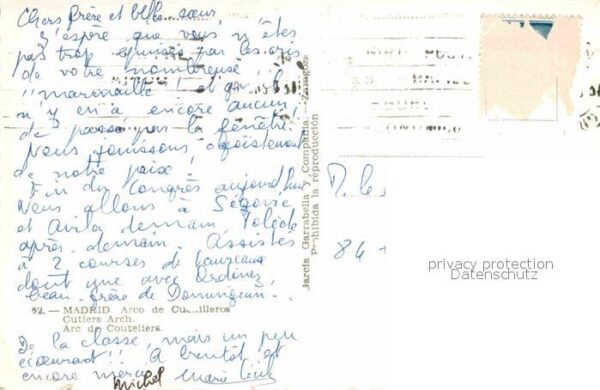 Chers frère et belle sœur,
J'espère que vous n'êtes
pas trop épuisés par les cris
de votre nombreuse
"marmaille" ! et qu'il
n'y en a encore aucun
de passé par la fenêtre.
Nous jouissons égoïstement
de notre paix !
Fin du Congrès aujourd'hui
Nous allons à Ségovie
et Avila demain, Tolède
après-demain. Assistés
à 2 courses de taureaux
dont une avec Ordinez,
beau-frère de Dominguin -
92. — MADRID. Arco de Cuchilleros
Cutlers Arch.
Arc de Couteliers.
De la classe, mais un peu
écœurant !! A bientôt et
encore merci
Michel Marie
García Garrabella y Compañía. — Zaragoza
Prohibida la reproducción
86 -
privacy protection
Datenschutz